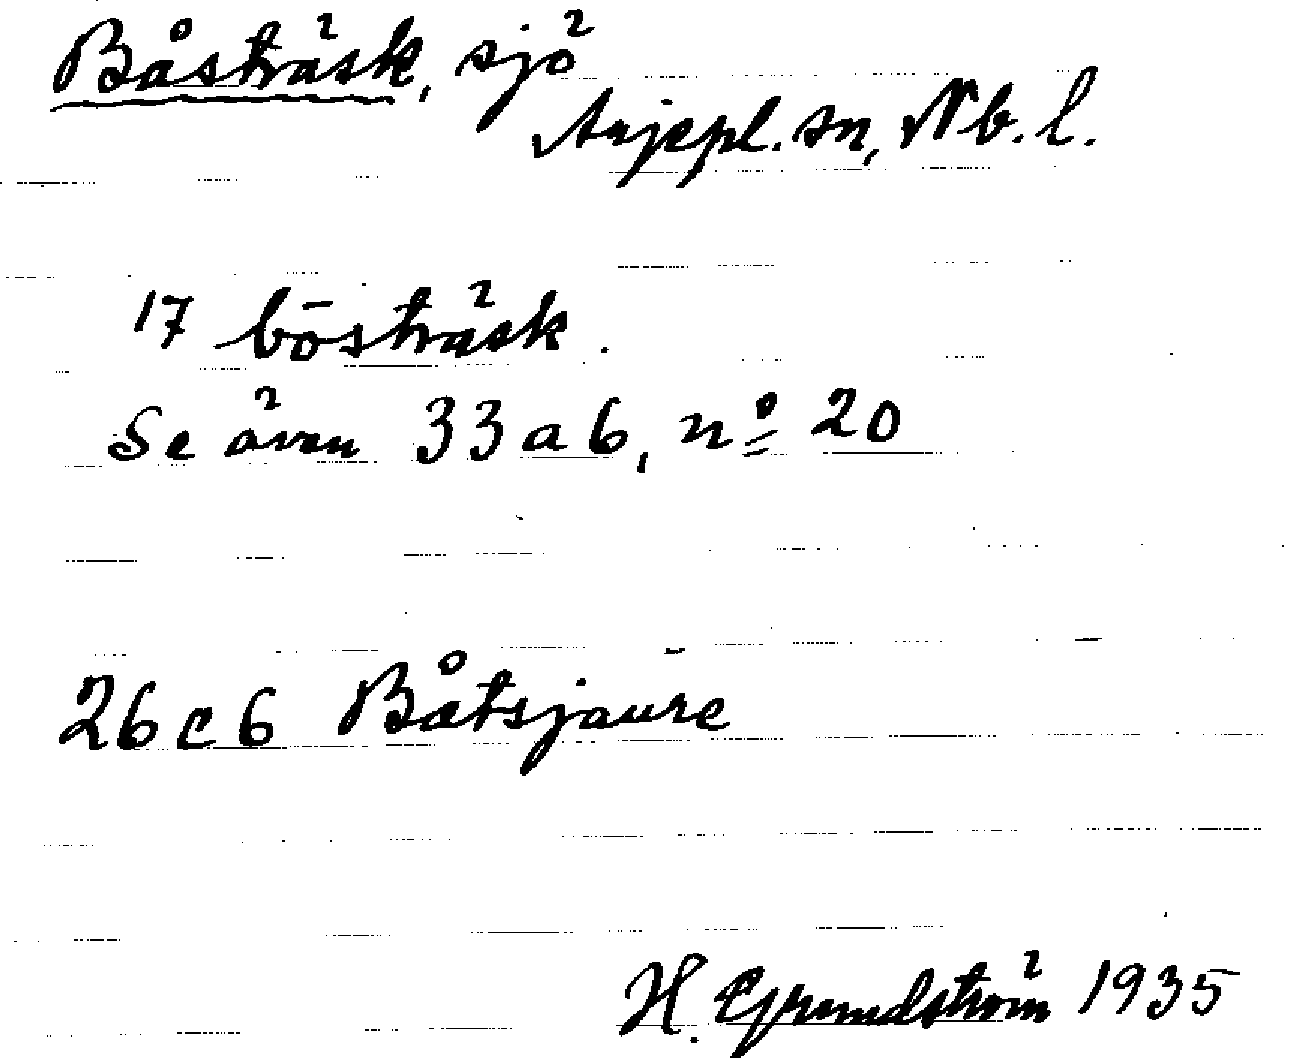 Båsträsk, sjö
Arjepl. sn, Nb. l.
17 bōsträsk.
Se även 33 a 6, nº 20
26 c 6 Båtsjaure
H. Grundström 1935